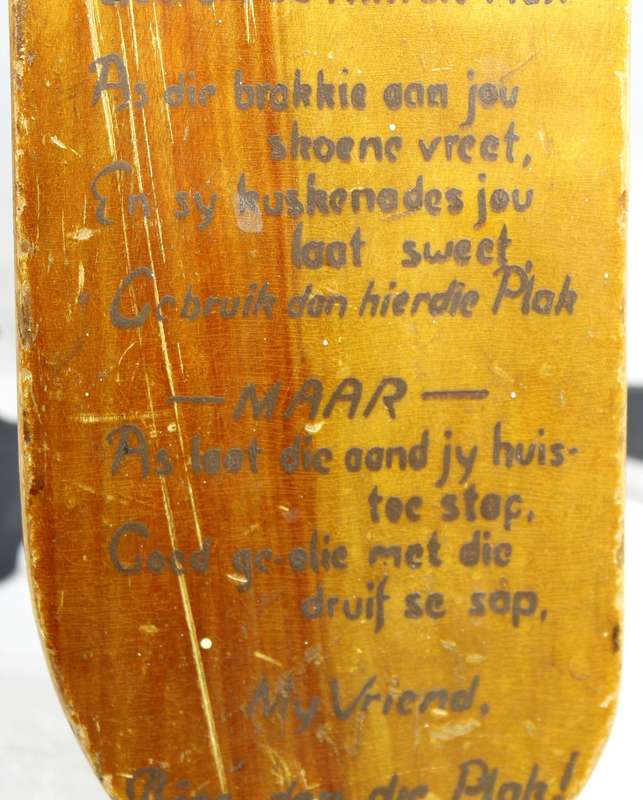 As die brakkie aan jou
skoene vreet,
En sy kuskenades jou
laat sweet,
Gebruik dan hierdie Plak
— MAAR —
As laat die aand jy huis-
toe stap,
Goed ge-olie met die
druif se sap,
My Vriend,
dan die Plak!